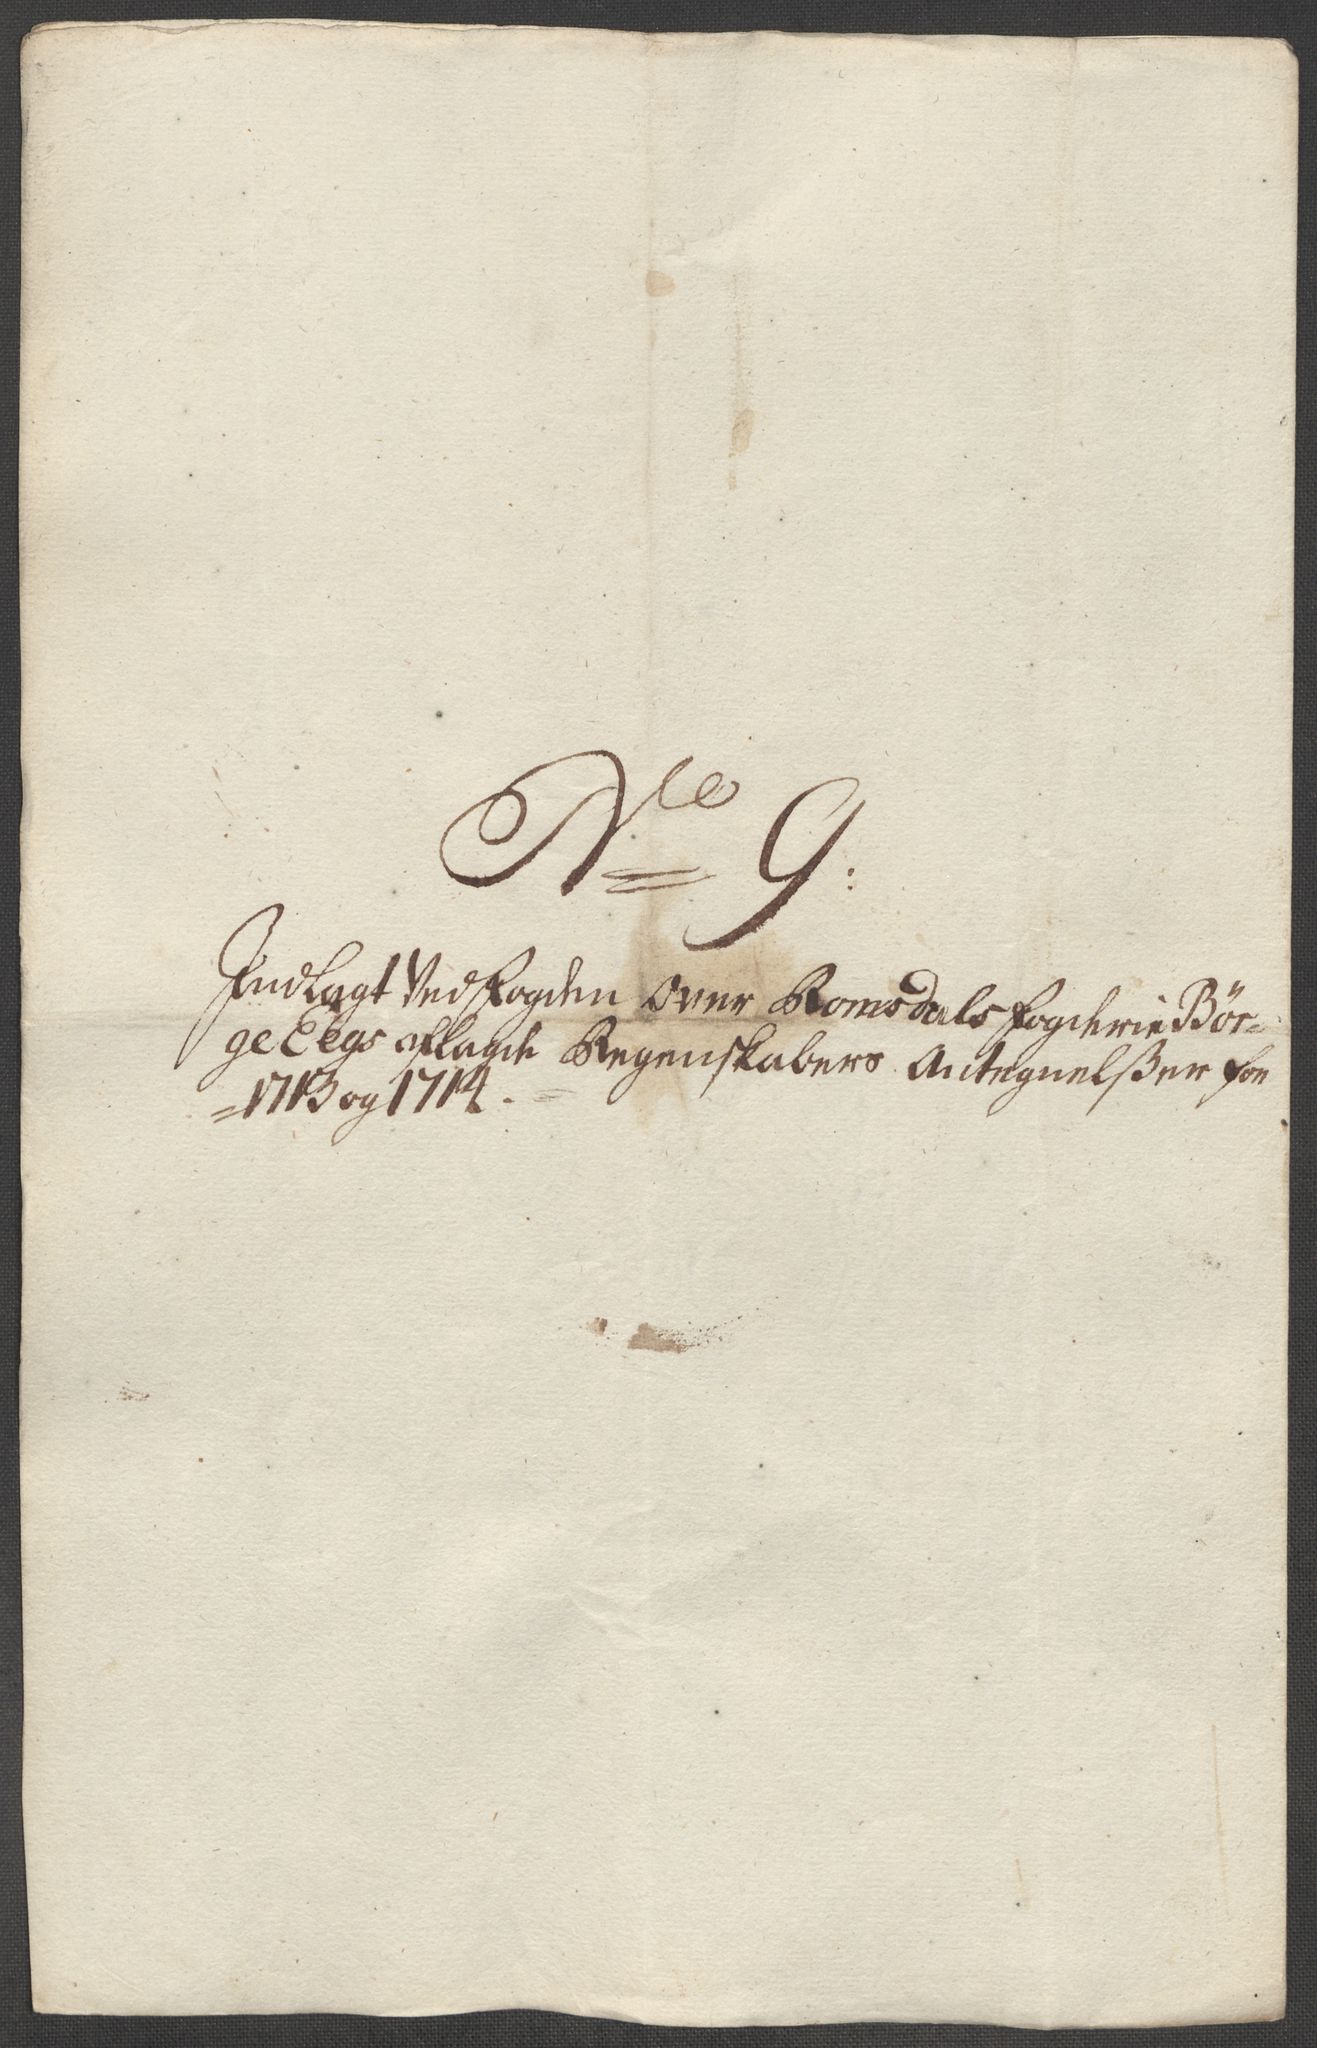 No 9:
Indlagt Ved Fogden over Romsdals fogderie Bör-
ge Eegs aflagde Regenskabers Antegnelßer for
1713 og 1714.